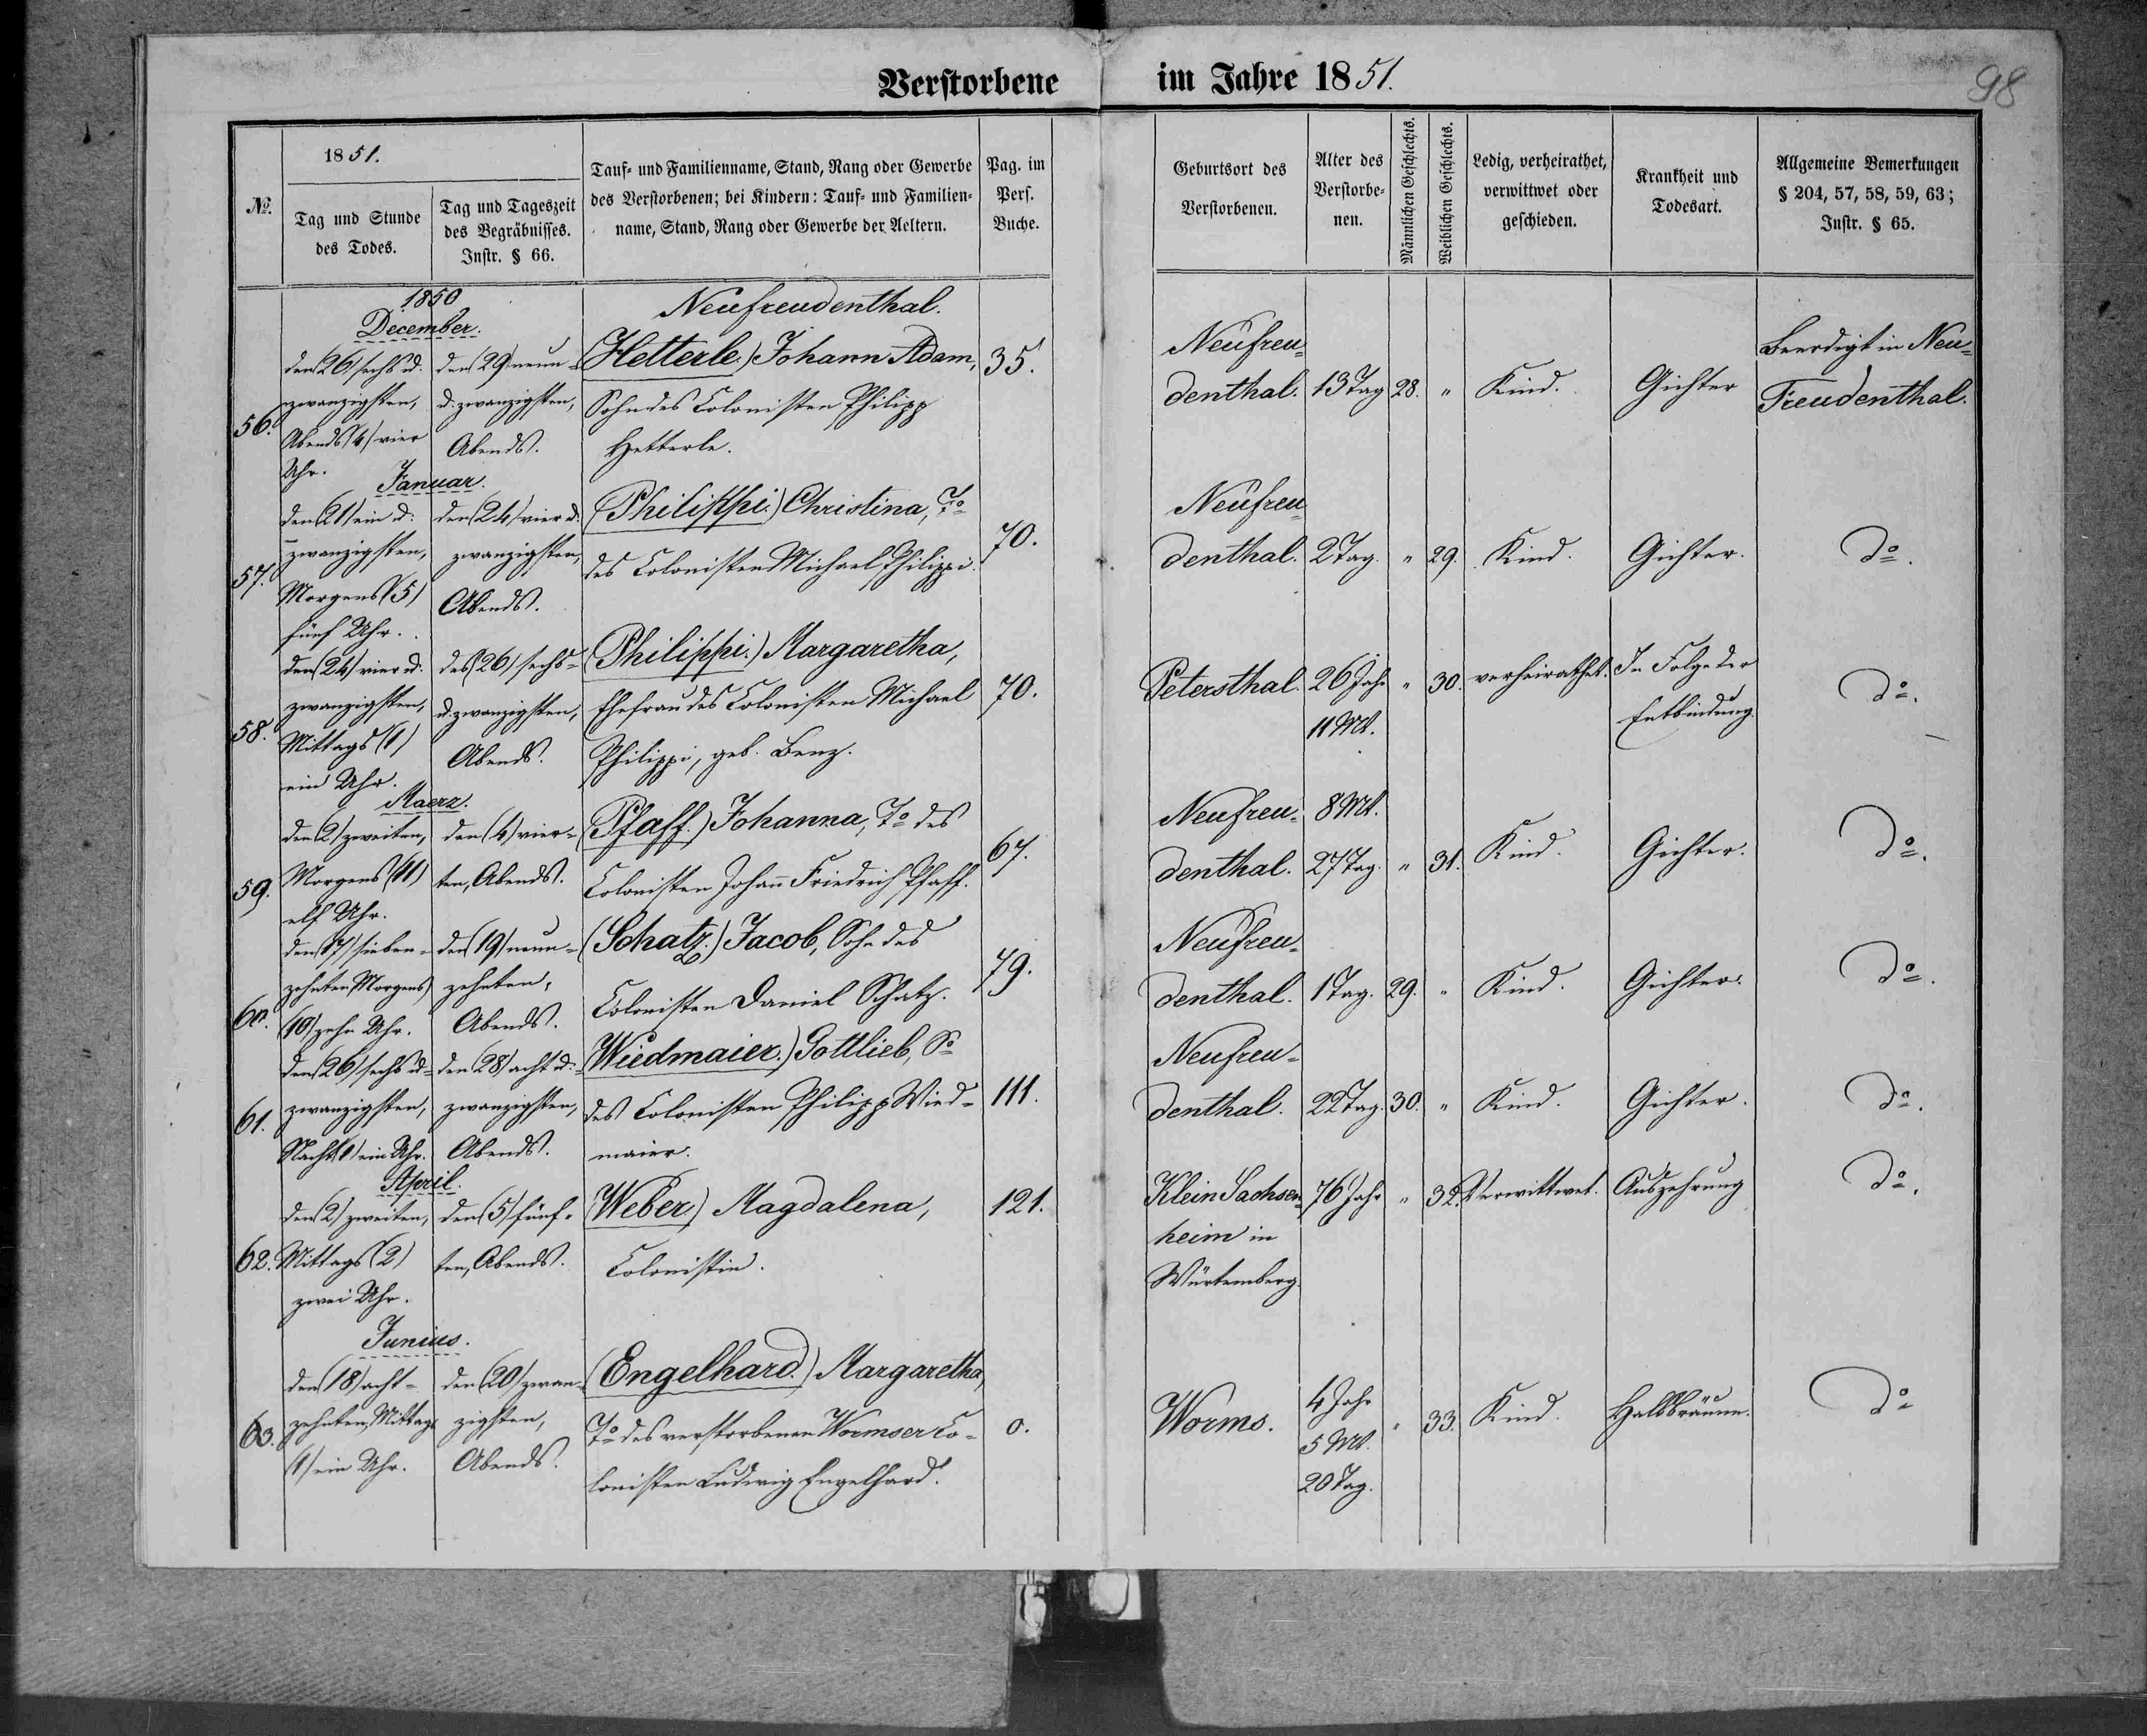 Verstorbene im Jahre 1851.
98
No.
1851.
Tag und Stunde
des Todes.
Tag und Tageszeit
des Begräbnisses.
Instr. § 66.
Tauf- und Familienname, Stand, Rang oder Gewerbe
des Verstorbenen; bei Kindern: Tauf- und Familien-
name, Stand, Rang oder Gewerbe der Aeltern.
Pag. im
Pers.
Buche.
Geburtsort des
Verstorbenen.
Alter des
Verstorbe-
nen.
Männlichen Geschlechts.
Weiblichen Geschlechts.
Ledig, verheirathet,
verwittwet oder
geschieden.
Krankheit und
Todesart.
Allgemeine Bemerkungen
§ 204, 57, 58, 59, 63;
Instr. § 65.
1850
December.
Neufreudenthal.
56.
den (26) sechs u.
zwanzigsten,
Abends (4) vier
Uhr.
den (29) neun
u. zwanzigsten,
Abends.
(Hetterle.) Johann Adam,
Sohn des Colonisten Philipp
Hetterle.
35.
Neufreu-
denthal.
13 Tag
28.
"
Kind.
Gichter
Beerdigt in Neu-
Freudenthal.
Januar.
57.
den (21) ein u.
zwanzigsten,
Morgens (5)
fünf Uhr.
den (24) vier u.
zwanzigsten,
Abends.
(Philippi.) Christina, To
des Colonisten Michael Philippi.
70.
Neufreu-
denthal.
2 Tag.
"
29.
Kind.
Gichter.
do.
58.
den (24) vier u.
zwanzigsten,
Mittags (1)
ein Uhr.
den (26) sechs-
u. zwanzigsten,
Abends.
(Philippi.) Margaretha,
Ehefrau des Colonisten Michael
Philippi, geb. Benz.
70.
Petersthal.
26 Jahr
11 Mt.
"
30.
verheirathet.
In Folge der
Entbindung.
do.
Maerz.
59.
den (2) zweiten,
Morgens (11)
elf Uhr.
den (4) vier-
ten, Abends.
(Pfaff.) Johanna, To des
Colonisten Johann Friedrich Pfaff.
67.
Neufreu-
denthal.
8 Mt.
27 Tag.
"
31.
Kind.
Gichter.
do.
60.
den (17) sieben-
zehnten Morgens
(10) zehn Uhr.
den (19) neun-
zehnten,
Abends.
(Schatz.) Jacob, Sohn des
Colonisten Daniel Schatz.
79.
Neufreu-
denthal.
1 Tag.
29.
"
Kind.
Gichter.
do.
61.
den (26) sechs u-
zwanzigsten,
Nachts (1) ein Uhr.
den (28) acht u.
zwanzigsten,
Abends.
(Wiedmaier.) Gottlieb, So
des Colonisten Philipp Wied-
maier.
111.
Neufreu-
denthal.
22 Tag.
30.
"
Kind.
Gichter.
do.
April.
62.
den (2) zweiten,
Mittags (2)
zwei Uhr.
den (5) fünf-
ten, Abends.
(Weber) Magdalena,
Colonistin.
121.
Klein Sachsen-
heim in
Würtemberg.
76 Jahr
"
32.
Verwittwet.
Auszehrung
do.
Junius.
63.
den (18) acht-
zehnten, Mittags
(1) ein Uhr.
den (20) zwan-
zigsten,
Abends.
(Engelhard.) Margaretha,
To des verstorbenen Wormser Co-
lonisten Ludwig Engelhard.
0.
Worms.
4 Jahr
5 Mt.
20 Tag.
"
33.
Kind.
Halsbräune.
do